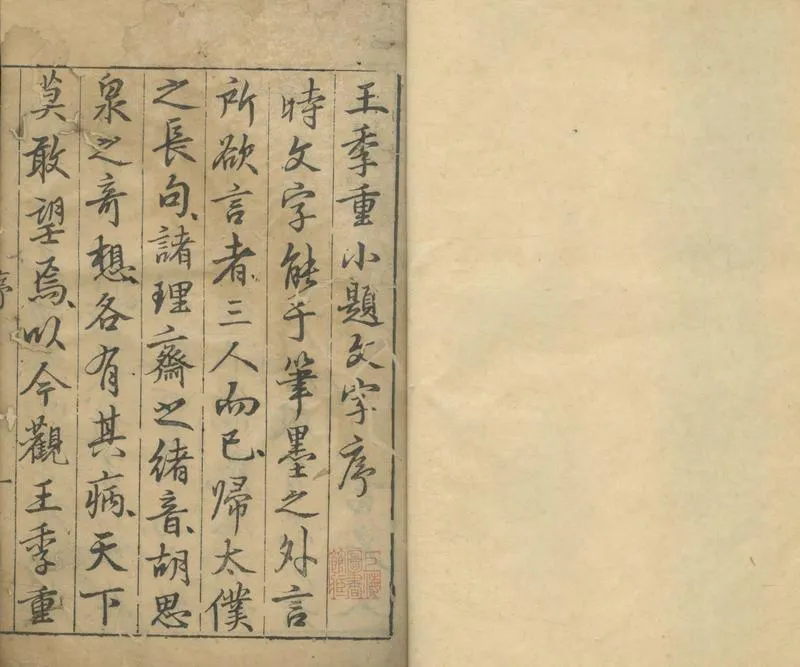 王季重小題文字序
時文字能于筆墨之外言
所欲言者三人而已歸太僕
之長句諸理齋之緒音胡思
泉之奇想各有其病天下
莫敢望焉以今觀王季重
序
一